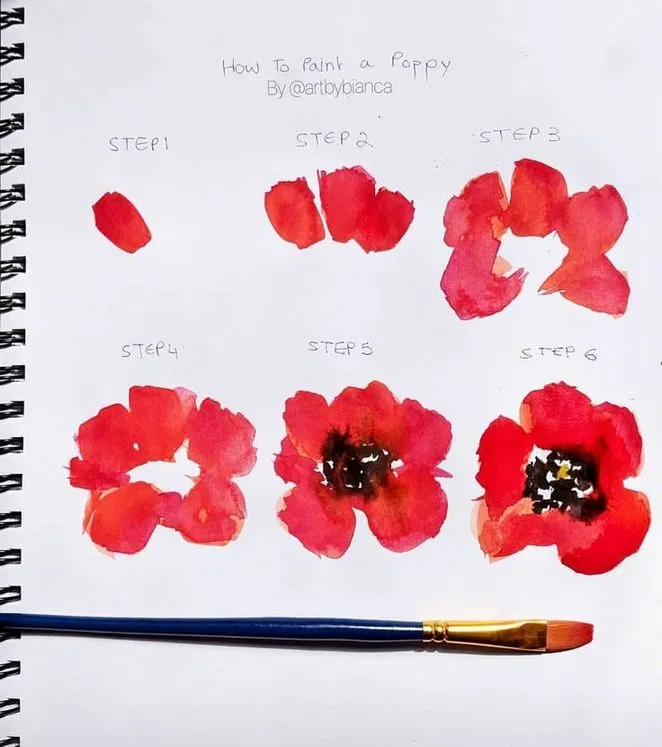 How To Paint a Poppy
By @artbybianca
STEP 1
STEP 2
STEP 3
STEP 4
STEP 5
STEP 6